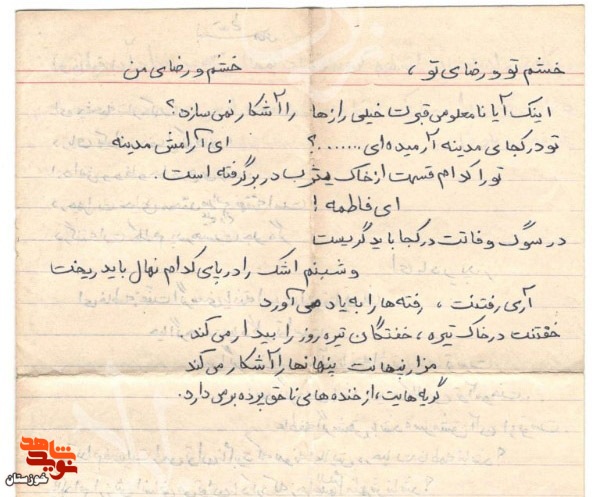 خشم تو و رضای تو ، خشم و رضای من
اینک آیا نامعلومی قبرت خیلی رازها را آشکار نمی سازد؟
تو در کجای مدینه آرمیده ای .......؟ ای آرامش مدینه
تو را کدام قسمت از خاک یثرب در بر گرفته است .
ای فاطمه !
در سوگ وفاتت در کجا باید گریست
و شبنم اشک را در پای کدام نهال باید ریخت
آری رفتنت ، رفته ها را به یاد می آورد
خفتنت در خاک تیره ، خفتگان تیره روز را بیدار می کند
مزار نهانت پنهانها را آشکار می کند
گریه هایت ، از خنده های ناحق پرده بر می دارد .
نوید شاهد
خوزستان